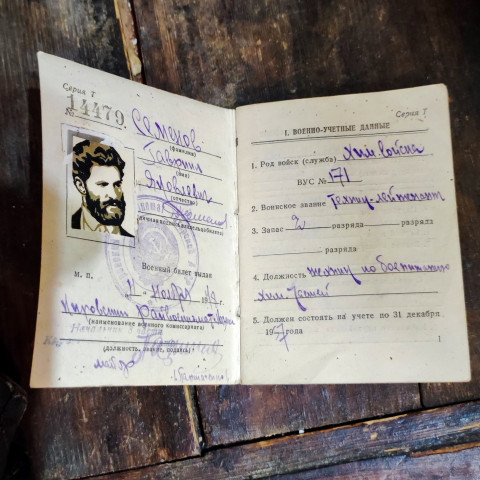 Серия Т
№ 14479
Семенов
(фамилия)
Гавриил
(имя)
Яковлевич
(отчество)
(личная подпись владельца билета)
М. П.
Военный билет выдан
2 ноября 19
Кировским Райвоенкоматом
(наименование военного комиссариата)
(должность, звание, подпись)
майор
Серия Т
I. ВОЕННО-УЧЕТНЫЕ ДАННЫЕ
1. Род войск (служба) Хим войска
ВУС № 171
2. Воинское звание техник-лейтенант
3. Запас 2 разряда разряд
разряда
4. Должность техник по
хим.
5. Должен состоять на учете по 31 декабря
19 года
1